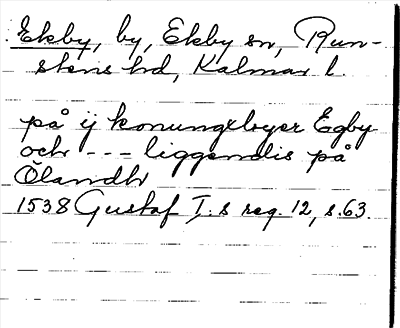 Ekby, by, Ekby sn, Run-
stens hd, Kalmar l.
på ij konungxbyer Egby
och --- liggendis på
Ölandh
1538 Gustaf I:s reg. 12, s. 63.